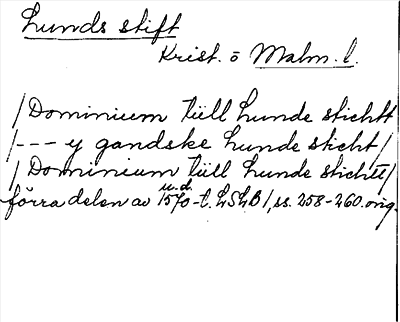 Lunds stift
Krist. o Malm. l.
/Dominium tüll Lunde stichtt
/--- y gandske Lunde sticht/
/Dominium tüll Lunde stichtt/
u.d.
förra delen av 1570-t. LSLB 1, ss. 258-260. orig.